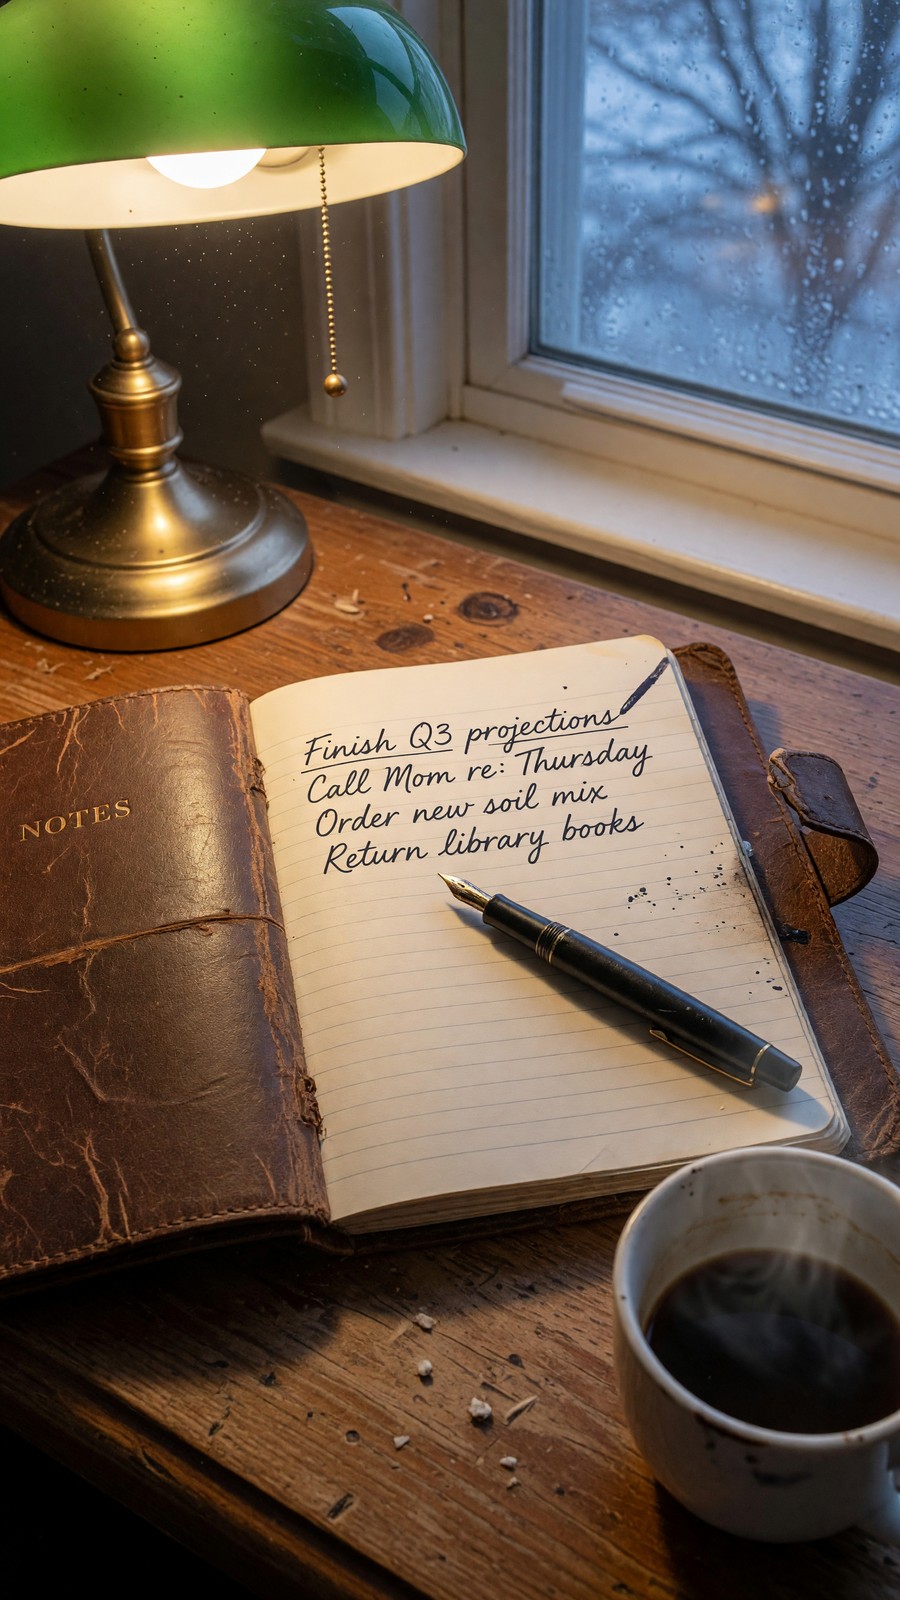 NOTES
Finish Q3 projections
Call Mom re: Thursday
Order new soil mix
Return library books